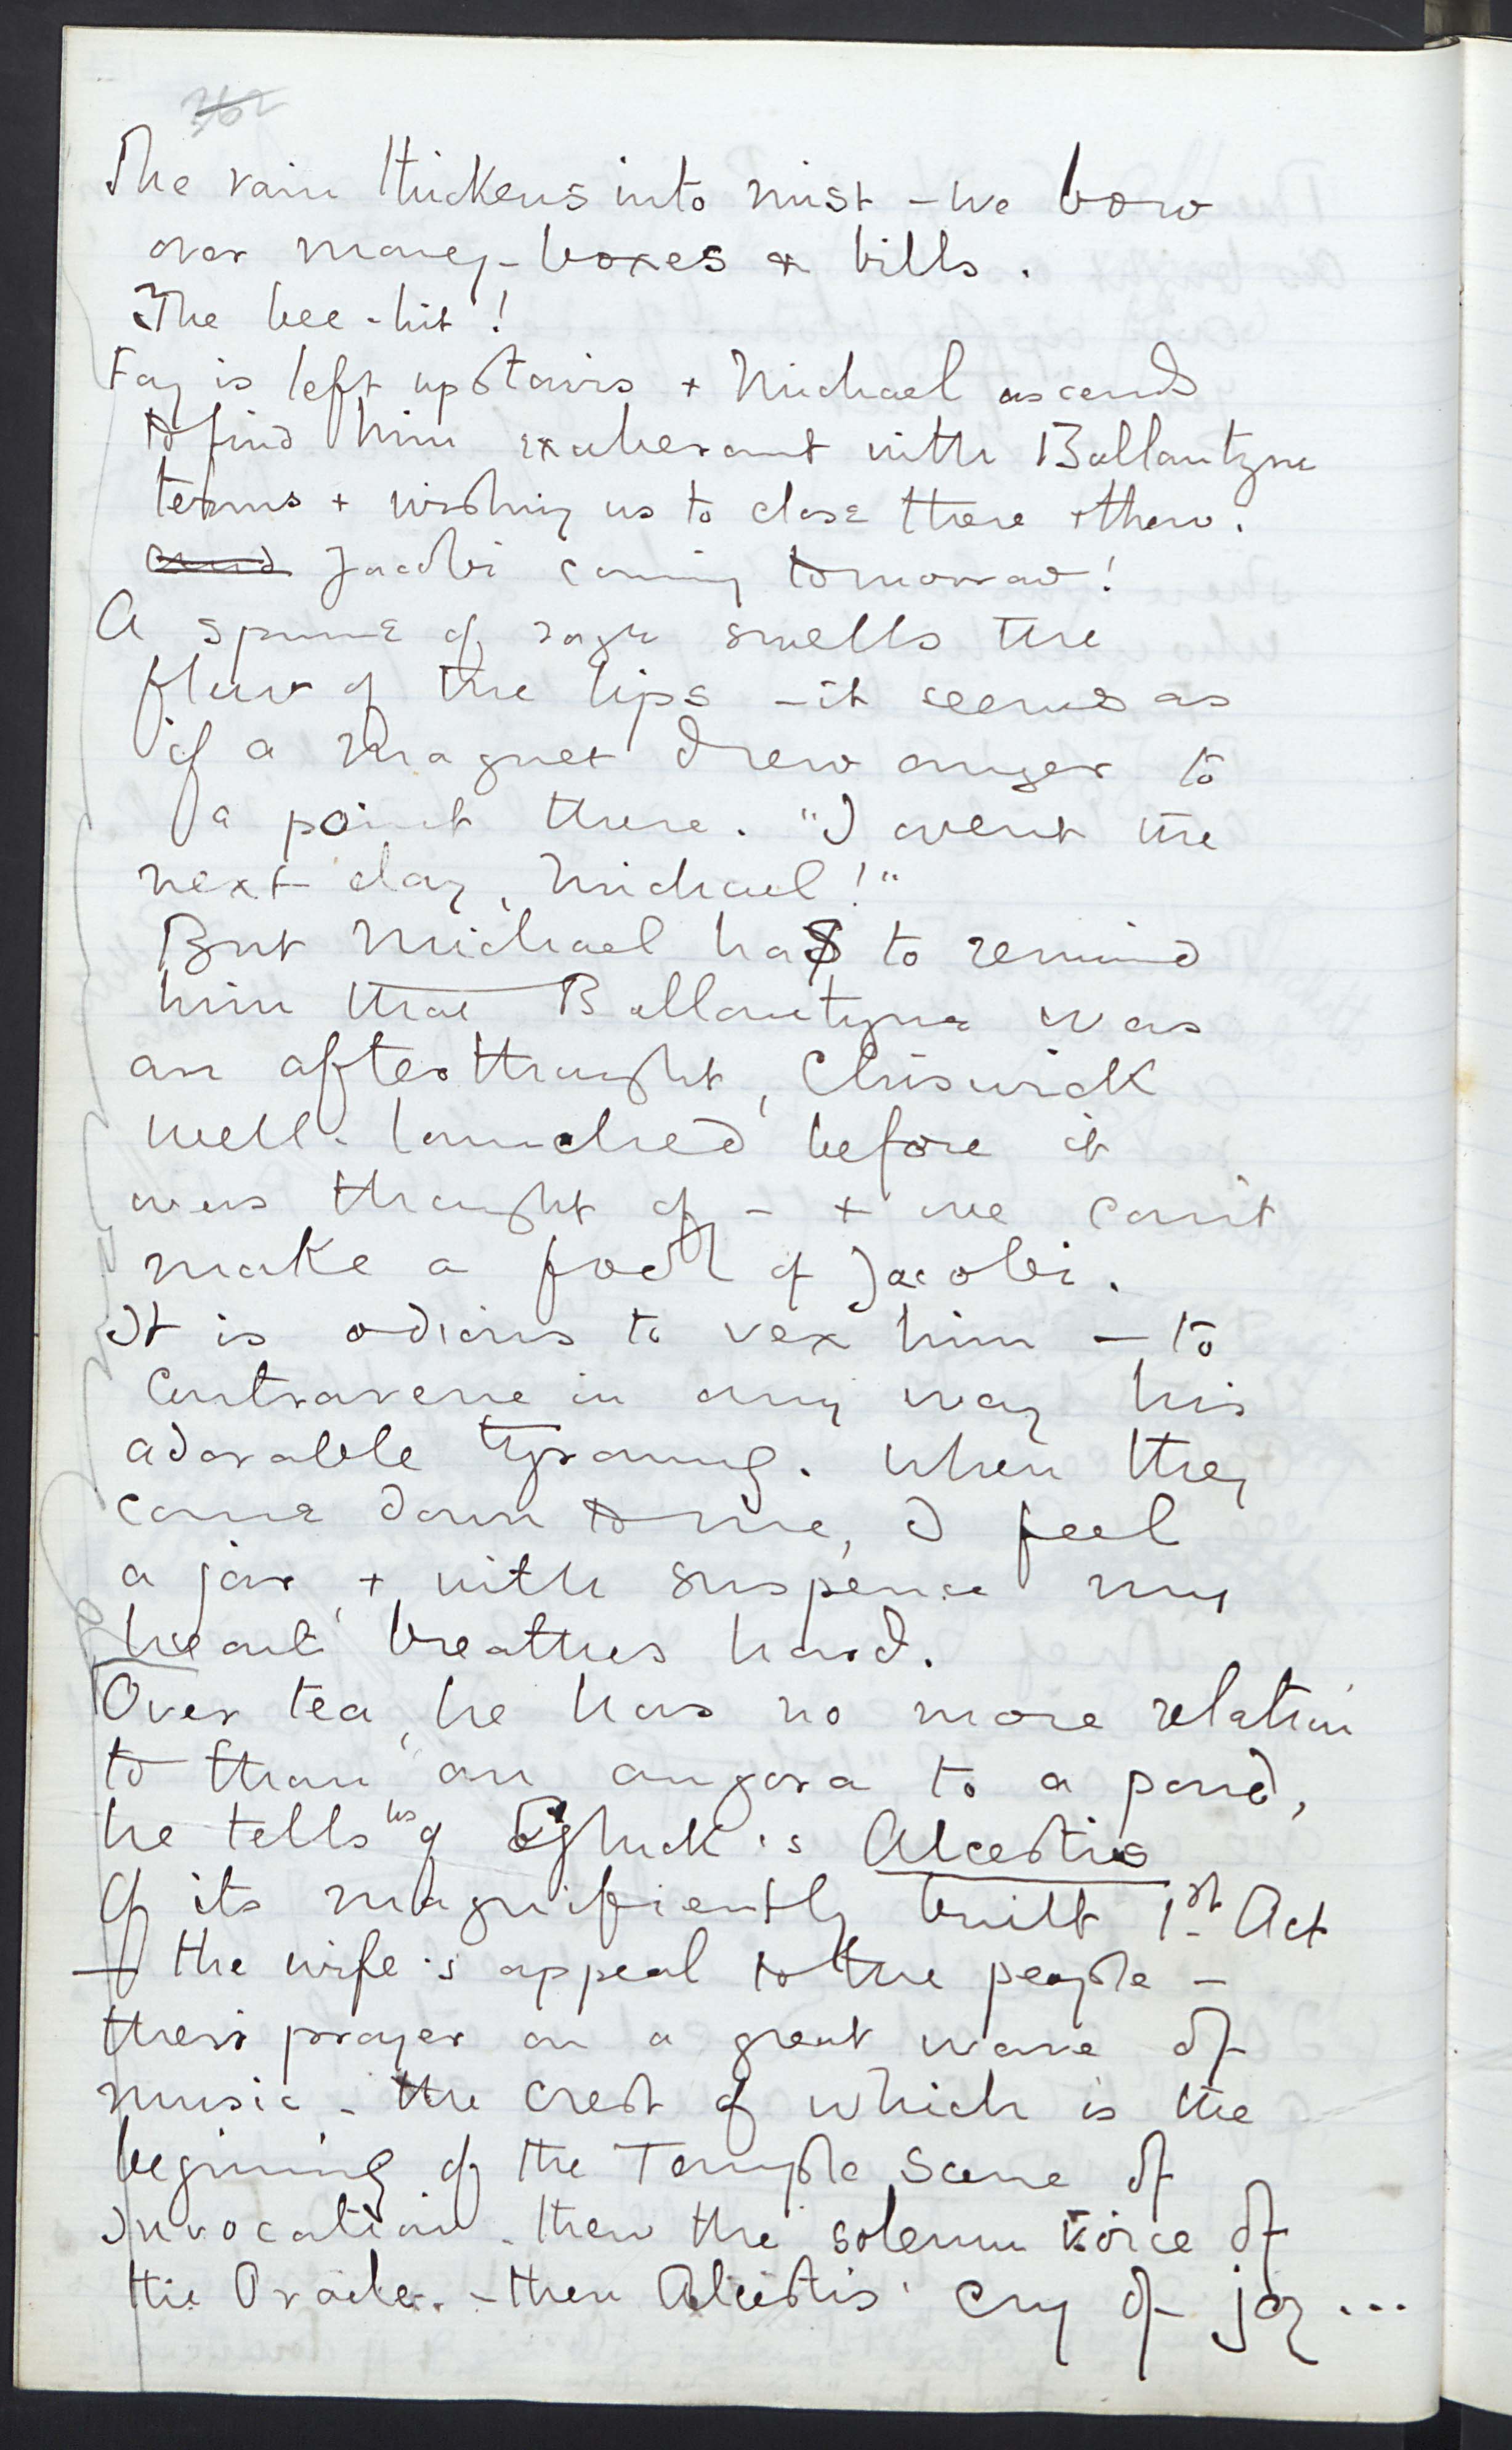 362
The rain thickens into mist – we bow
over money-boxes & bills.
The bee-hit!
Fay is left upstairs + Michael ascends
to find him exuberant with Ballantyne
terms + wishing us to close there + then.
and Jacobi coming tomorrow!
A spume of rage swells the
fleur of the lips – it seems as
if a magnet drew anger to
a point there. "I went the
next day, Michael!"
But Michael has to remind
him that Ballantyne was
an afterthought, Chiswick
well-launched before it
was thought of – + we can't
make a fool of Jacobi.
It is odious to vex him – to
contravene in any way his
adorable tyranny. When they
come down to me, I feel
a jar, + with suspense my
heart breathes hard.
Over tea, he has no more relation
to than an angora to a pond,
he tells us of Gluck's Alcestis
Of its magnificently built 1st Act
– the wife's appeal to the people –
their prayer on a great wave of
music – the crest of which is the
beginning of the Temple Scene of
Invocation – then the solemn voice of
the Oracle. – then Alcestis' cry of joy ...